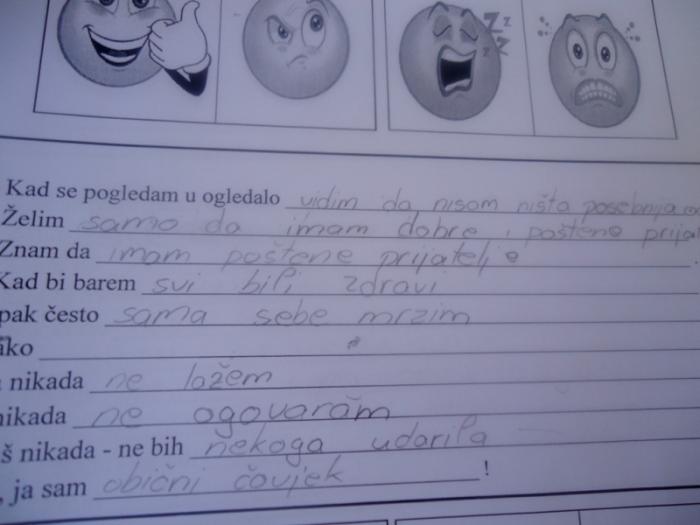 Z z
z
z Z
Kad se pogledam u ogledalo vidim da nisam ništa posebnija
Želim samo da imam dobre i poštene prijat
Znam da imam poštene prijatelje.
Kad bi barem svi bili zdravi
pak često sama sebe mrzim
ako
nikada ne lažem
nikada ne ogovaram
š nikada - ne bih nekoga udarila
, ja sam obični čovjek !